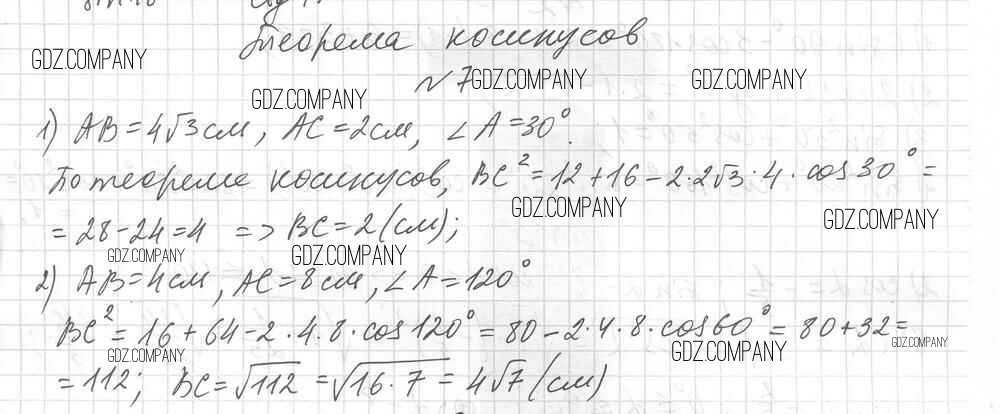 Теорема косинусов
GDZ.COMPANY
№7 GDZ.COMPANY GDZ.COMPANY
GDZ.COMPANY
1) AB=4√3 см, AC=2см, ∠A=30°.
По теореме косинусов, BC²=12+16-2·2√3·4·cos30°=
GDZ.COMPANY GDZ.COMPANY
=28-24=4 => BC=2(см);
GDZ.COMPANY GDZ.COMPANY
2) AB=4см, AC=8см, ∠A=120°
BC²=16+64-2·4·8·cos120°=80-2·4·8·cos60°=80+32=
GDZ.COMPANY GDZ.COMPANY GDZ.COMPANY
=112; BC=√112=√16·7=4√7(см)